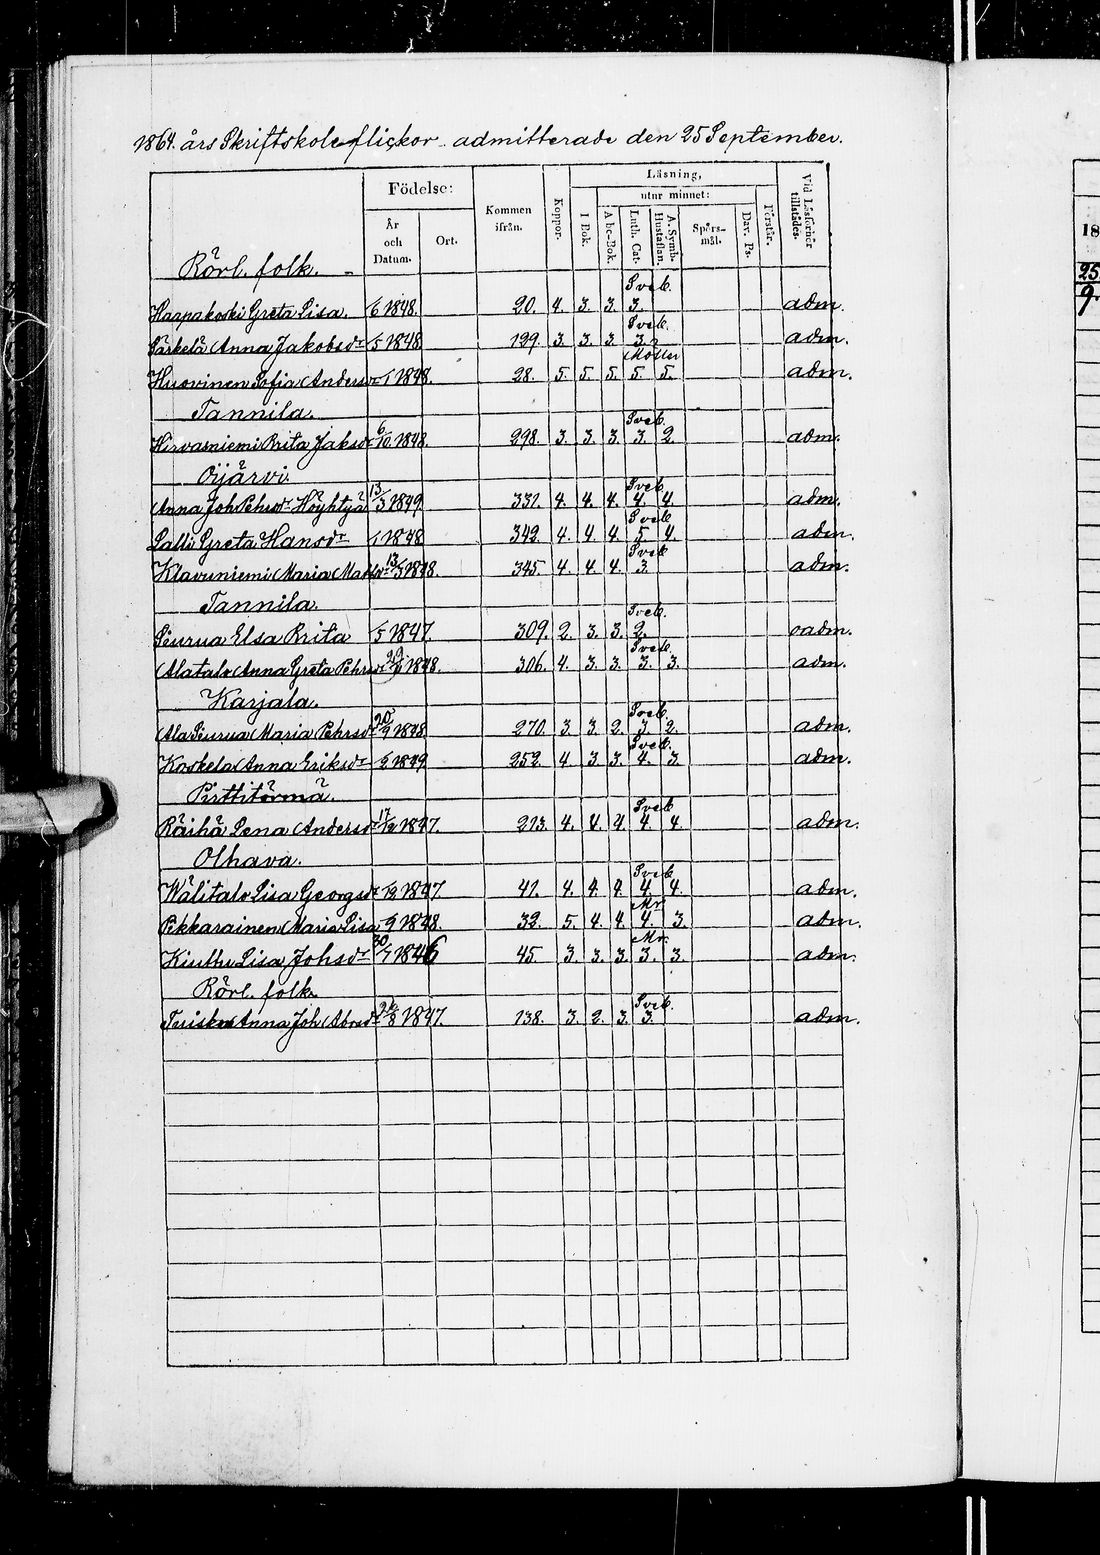 1864. års Skriftskoleflickor admitterade den 25 September.
Födelse: Kommen ifrån. Koppor. Läsning, Vid Läsförhör tillstädes.
År och Datum. Ort. I Bok. utur minnet: Förstår.
A bc-Bok. Luth. Cat. A. Symb. Hustaflan. Spörs-mål. Dav. Ps.
Rörl. folk.
Sveb.
Harpakoski Greta Lisa. 6 1848. 20. 4. 3. 3. 3. adm.
Sveb.
Särkelä Anna Jakobsdr 5 1848 199. 3. 3. 3. 3. adm.
Möller
Huovinen Sofia Andersdr 1 1848. 28. 5. 5. 5. 5. 5. adm.
Tannila.
Sveb.
Hirvasniemi Brita Jaksdr 6/10 1848. 298. 3. 3. 3. 3. 2. adm.
Oijärvi
Sveb.
Anna Joh Pehrsdr Höyhtyä 13/3 1849. 331. 4. 4. 4. 4. 4. adm.
Sveb
Salli Greta Hansdr 1 1848 342. 4. 4. 4. 5. 4. adm.
Sveb.
Klavuniemi Maria Matsdr 13/3 1848. 345. 4. 4. 4. 3. adm.
Tannila.
Sveb.
Siurua Elsa Brita 5 1847. 309. 2. 3. 3. 2. adm.
Sveb.
Alatalo Anna Greta Pehrsdr 1848. 306. 4. 3. 3. 3. 3. adm.
Karjala.
Sveb.
Ala Siurua Maria Pehrsdr 20/9 1848. 270. 3. 3. 2. 3. 2. adm.
Sveb.
Koskela Anna Eriksdr 1849 252. 4. 3. 3. 4. 3. adm.
Pirttitörmä.
Sveb.
Räihä Lena Andersdr 17/12 1847. 213. 4. 4. 4. 4. 4. adm.
Olhava.
Sveb.
Wälitalo Lisa Georgsdr 12 1847 41. 4. 4. 4. 4. 4. adm.
Mr.
Pekkarainen Maria Lisa 9 1848. 32. 5. 4. 4. 4. 3. adm.
Mr.
Kinttu Lisa Johsdr 30/7 1846 45. 3. 3. 3. 3. 3. adm.
Rörl. folk.
Sveb.
Anna Joh Abrsdr 1847. 138. 3. 2. 3. 3. adm.
18
25
9.